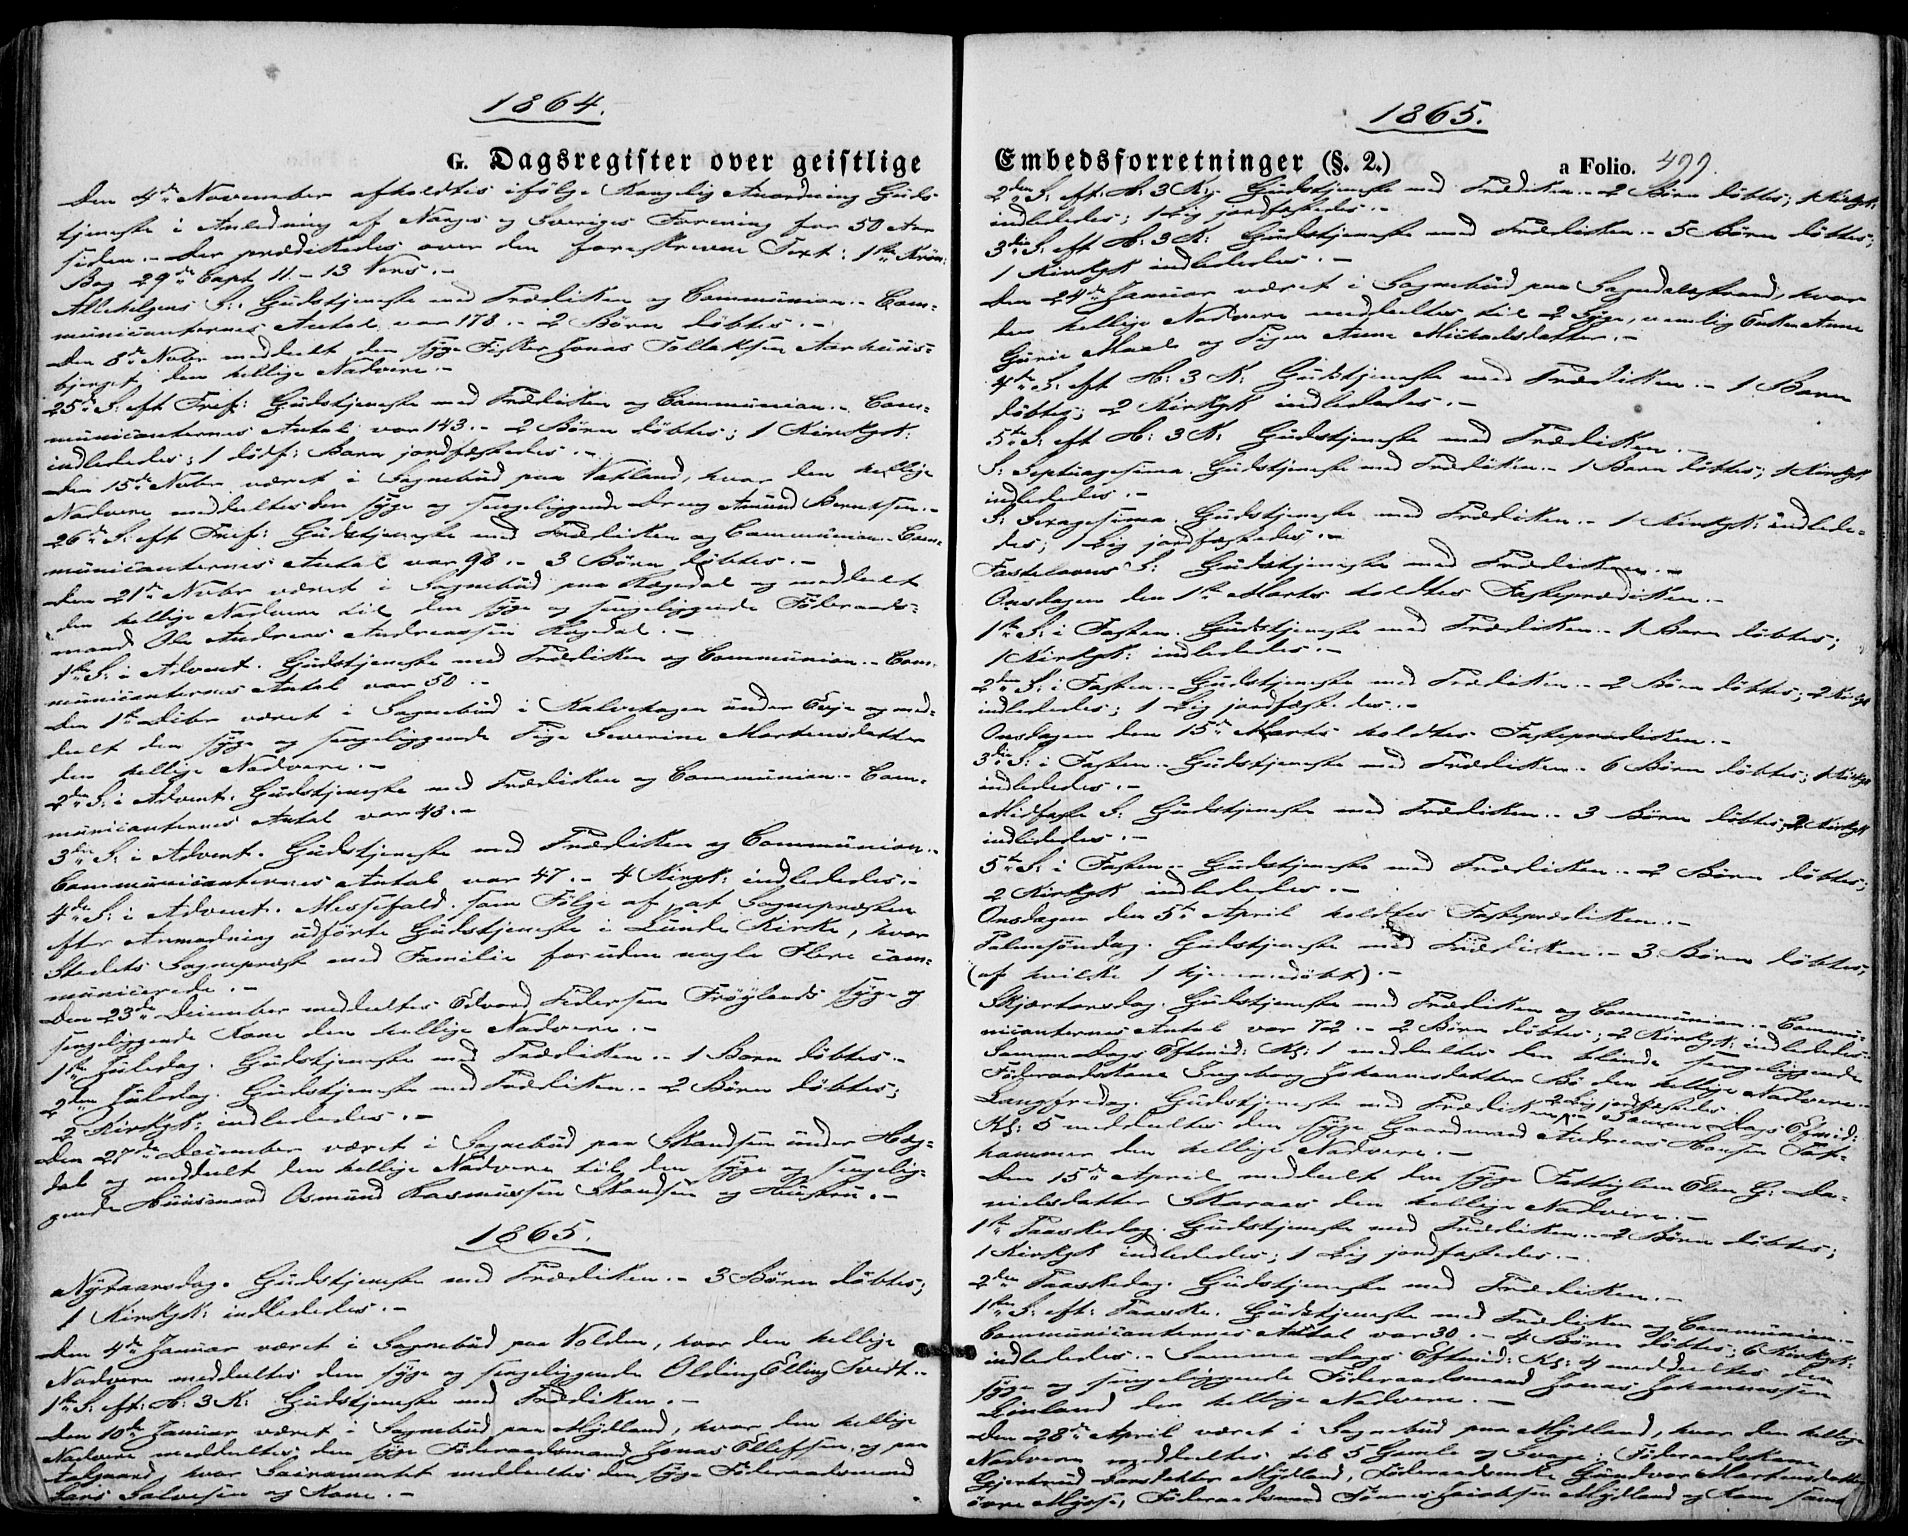 1864.
G. Dagsregister over geistlige
Den 4de November afholdtes ifølge Kongelig Anordning Guds-
tjeneste i Anledning af Norges og Sveriges Forening for 50 Aar
siden.- Der prædikedes over den foreskrevne Text: 1ste Krøn:
Bog 29de Capt 11.-13 Vers.-
Allehelgens S: Gudstjeneste med Prædiken og Communion.- Com-
municanternes Antal var 178.- 2 Børn døbtes.-
Den 8de Novbr meddeelt den syge Jonas Tollaksen Aarhuus-
bjerget den hellige Nadvere.-
25de S: eft Tref: Gudstjeneste med Prædiken og Communion.- Com-
municanternes Antal var 143.- 2 Børn døbtes; 1 Kirkgk:
indlededes; 1 dødf: Barn jordfæstedes.-
Den 15de Novbr været i Sognebud paa Vatland, hvor den hellige
Nadvere meddeeltes den syge og sengeliggende Dreng Amund Berntsen.-
26de S: eft Tref: Gudstjeneste med Prædiken og Communion.- Com-
municanternes Antal var 98.- 3 Børn døbtes.-
Den 21de Novbr været i Sognebud paa Rægedal og meddeelt
den hellige Nadvere til den syge og sengeliggende Føderaads-
mand Ole Andreas Andreassen Rægedal.-
1ste S: i Advent. Gudstjeneste med Prædiken og Communion.- Com-
municanternes Antal var 50.-
Den 1ste Decbr været i Sognebud i Kalvehagen under Eeje og med-
deelt den syge og sengeliggende Pige Severine Martensdatter
den hellige Nadvere.-
2den S: i Advent. Gudstjeneste med Prædiken og Communion.- Com-
municanternes Antal var 43.-
3die S: i Advent. Gudstjeneste med Prædiken og Communion.-
Communicanternes Antal var 47.- 4 Kirgk: indlededes.-
4de S: i Advent. Messefald som Følge af, at Sognepræsten
efter Anmodning udførte Gudstjeneste i Lunde Kirke, hvor
Stedets Sognepræst med Familie foruden nogle Flere com-
municerede.-
Den 23de December meddeeltes Edvard Pedersen Frøylands syge og
sengeliggende Kone den hellige Nadvere.-
1ste Juledag. Gudstjeneste med Prædiken.- 1 Barn døbtes.-
2den Juledag. Gudstjeneste med Prædiken.- 2 Børn døbtes;
2 Kirkgk: indlededes.-
Den 27de December været i Sognebud paa Skandsen under Ræg-
dal og meddeelt den hellige Nadvere til den syge og sengelig-
gende Huusmand Osmund Rasmussen Skandsen og Hustru.-
1865.
Nytaarsdag. Gudstjeneste med Prædiken.- 3 Børn døbtes;
1 Kirkgk: indlededes.-
Den 4de Januar været i Sognebud paa Volden, hvor den hellige
Nadvere meddeeltes den syge og sengeliggende Olding Elling Tvedt.-
1ste S: eft: H: 3 K: Gudstjeneste med Prædiken.-
Den 10de Januar været i Sognebud paa Mydland, hvor den hellige
Nadvere meddeeltes den syge Føderaadsmand Jonas Ellefsen, og paa
Aalgaard, hvor Sacramentet meddeeltes den syge Føderaadsmand
Lars Salvesen og Kone.-
1865.
Embedsforretninger (§. 2.) a Folio. 499.
2den S: eft: H: 3 K: Gudstjeneste med Prædiken.- 2 Børn døbtes; 1 Kirkgk:
indlededes; 1 Lig jordfæstedes.-
3die S: eft H: 3 K: Gudstjeneste med Prædiken.- 5 Børn døbtes;
1 Kirkgk indlededes.-
Den 24de Januar været i Sognebud paa Sogndalstrand, hvor
den hellige Nadvere meddeeltes til 2 Syge, nemlig Enken Anne
Gurie Maal og Pigen Anne Michaelsdatter.-
4de S: eft H: 3 K: Gudstjeneste med Prædiken.- 1 Barn
døbtes; 2 Kirkgk indlededes.-
5te S: eft H: 3 K: Gudstjeneste med Prædiken.-
S: Septuagesima. Gudstjeneste med Prædiken.- 1 Barn døbtes; 1 Kirkgk
indlededes.-
S: Sexagesima. Gudstjeneste med Prædiken.- 1 Kirkgk: indlede-
des; 1 Lig jordfæstedes.-
Fastelavns S: Gudstjeneste med Prædiken.-
Onsdagen den 1ste Marts holdtes Fasteprædiken.-
1ste S: i Fasten. Gudstjeneste med Prædiken.- 1 Barn døbtes;
1 Kirkgk: indlededes.-
2den S: i Fasten.- Gudstjeneste med Prædiken.- 2 Børn døbtes; 2 Kirkgk
indlededes; 1 Lig jordfæstedes.-
Onsdagen den 15de Marts holdtes Fasteprædiken.-
3die S: i Fasten.- Gudstjeneste med Prædiken.- 6 Børn døbtes; 1 Kirkgk
indlededes.-
Midfaste S: Gudstjeneste med Prædiken.- 3 Børn døbtes; 2 Kirkgk
indlededes.-
5te S: i Fasten.- Gudstjeneste med Prædiken.- 2 Børn døbtes;
2 Kirkgk indlededes.-
Onsdagen den 5te April holdtes Fasteprædiken.-
Palmesøndag. Gudstjeneste med Prædiken.- 3 Børn døbtes,
(af hvilke 1 hjemmedøbt).-
Skjærtorsdag. Gudstjeneste med Prædiken og Communion.- Commu-
nicanternes Antal var 72.- 2 Børn døbtes; 2 Kirkgk: indlededes.-
Samme Dags Eftmid: Kl: 1 meddeeltes den blinde sengeliggende
Føderaadskone Ingeborg Johannesdatter Bø den hellige Nadvere.-
2 Lig jordfæstedes
Langfredag. Gudstjeneste med Prædiken.- Samme Dags Eftmid:
Kl: 5 meddeeltes den syge Gaardmand Andreas Hansen Tos-
hammer den hellige Nadvere.-
Den 15de April meddeelt den syge Fattiglem Elen G: Da-
nielsdatter Skaraas den hellige Nadvere.-
1ste Paaskedag. Gudstjeneste med Prædiken.- 2 Børn døbtes;
1 Kirkgk indlededes; 1 Lig jordfæstedes.-
2den Paaskedag. Gudstjeneste med Prædiken.-
1ste S: eft: Paaske. Gudstjeneste med Prædiken og Communion.-
Communicanternes Antal var 30.- 4 Børn døbtes; 6 Kirkgk:
indlededes.- Samme Dags Eftmid: Kl: 4 meddeeltes den
syge og sengeliggende Føderaadsmand Jonas Johannessen
Linland den hellige Nadvere.-
Den 28de April været i Sognebud paa Mydland, hvor den hellige
Nadvere meddeeltes til 5 Gamle og Svage, Føderaadskone
Gjertrud Larsdatter Mydland, Føderaadsenke Gundvor Martensdatter
øvre Mysse, Føderaadsmand Tønnes Jacobsen Mydland og Kone samt